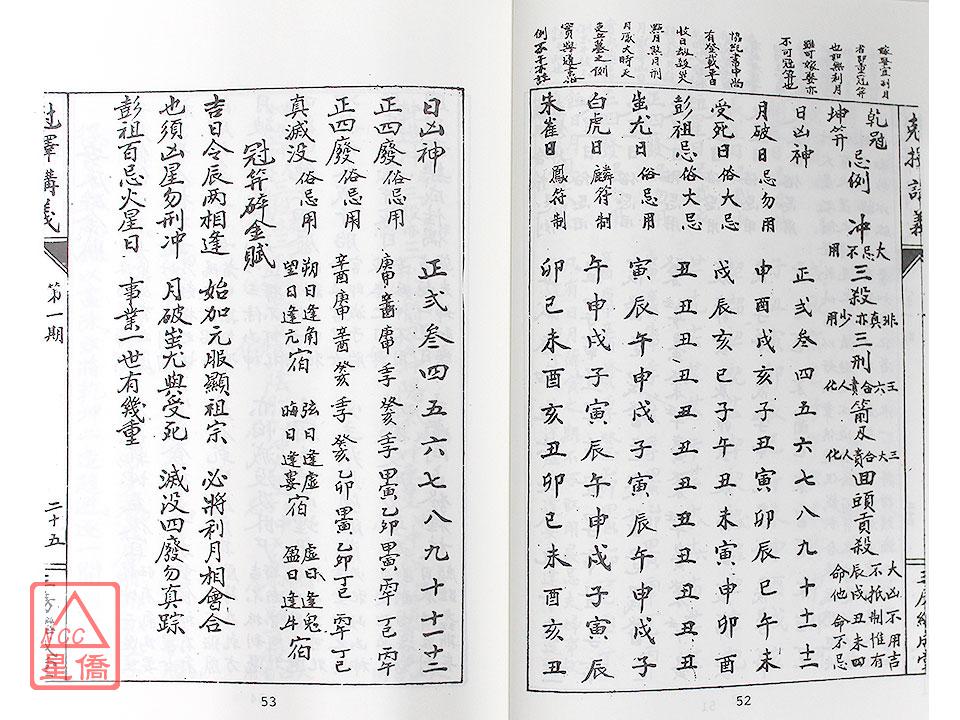 嫁娶宜利月
若單重冠笄
也和無利月
雖可嫁娶亦
不可冠笄也
協紀書中尚
有登載書日
收日劫殺災
熬月熬月刑
月厭大時天
吏五墓之例
實與通書俗
例不千不經
剋擇講義
乾冠
坤笄 忌例 冲 大忌不用 三殺 非真亦少用 三刑 三六合貴人化 箭刃 三大合貴人化 回頭貢殺 大凶不用吉不抵制惟有辰戌丑未四命他命不忌
日凶神 正弍叁四五六七八九十十一十二
月破日忌勿用 申酉戌亥子丑寅卯辰巳午未
受死日俗大忌 戌辰亥巳子午丑未寅申卯酉
彭祖忌俗大忌 丑丑丑丑丑丑丑丑丑丑丑丑
蚩尤日俗忌用 寅辰午申戌子寅辰午申戌子
白虎日麟符制 午申戌子寅辰午申戌子寅辰
朱雀日鳳符制 卯巳未酉亥丑卯巳未酉亥丑
52
日凶神 正弍叁四五六七八九十十一十二
正四廢俗忌用
正四廢俗忌用
真滅没俗忌用 朔日逢角 望日逢亢 宿 弦日逢虛 晦日逢婁 宿 虛日逢鬼 盈日逢牛 宿
冠笄碎金賦
吉日令辰兩相逢 始加元服顯祖宗 必將利月相會合
也須凶星勿刑冲 月破蚩尤與受死 滅没四廢勿真踪
彭祖百忌火星日 事業一世有幾重
剋擇講義 第一期 二十五
53
JCC
星僑